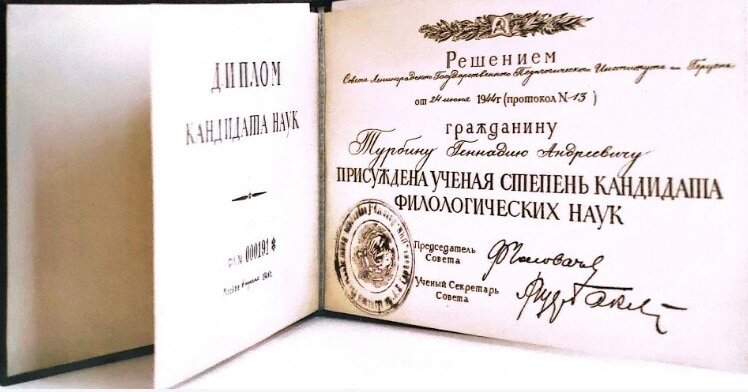 ДИПЛОМ
КАНДИДАТА НАУК
№ 000191
Решением
Совета Ленинградского Государственного Педагогического Института им Герцена
от 24 июня 1944 г (протокол N-13)
гражданину
Турбину Геннадию Андреевичу
ПРИСУЖДЕНА УЧЕНАЯ СТЕПЕНЬ КАНДИДАТА
ФИЛОЛОГИЧЕСКИХ НАУК
Председатель
Совета
Ученый Секретарь
Совета